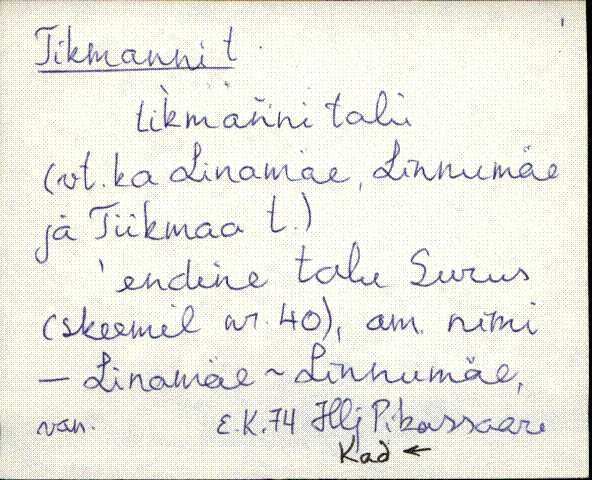 Tikmanni t.
tìkmàǹni talu
(vt. ka Linamäe, Linnumäe
ja Tiikmaa t.)
'endine talu Surus
(skeemil nr. 40), am. nimi
— Linamäe ~ Linnumäe,
van. E.K. 74 Hlj Pikassaare
Kad ←